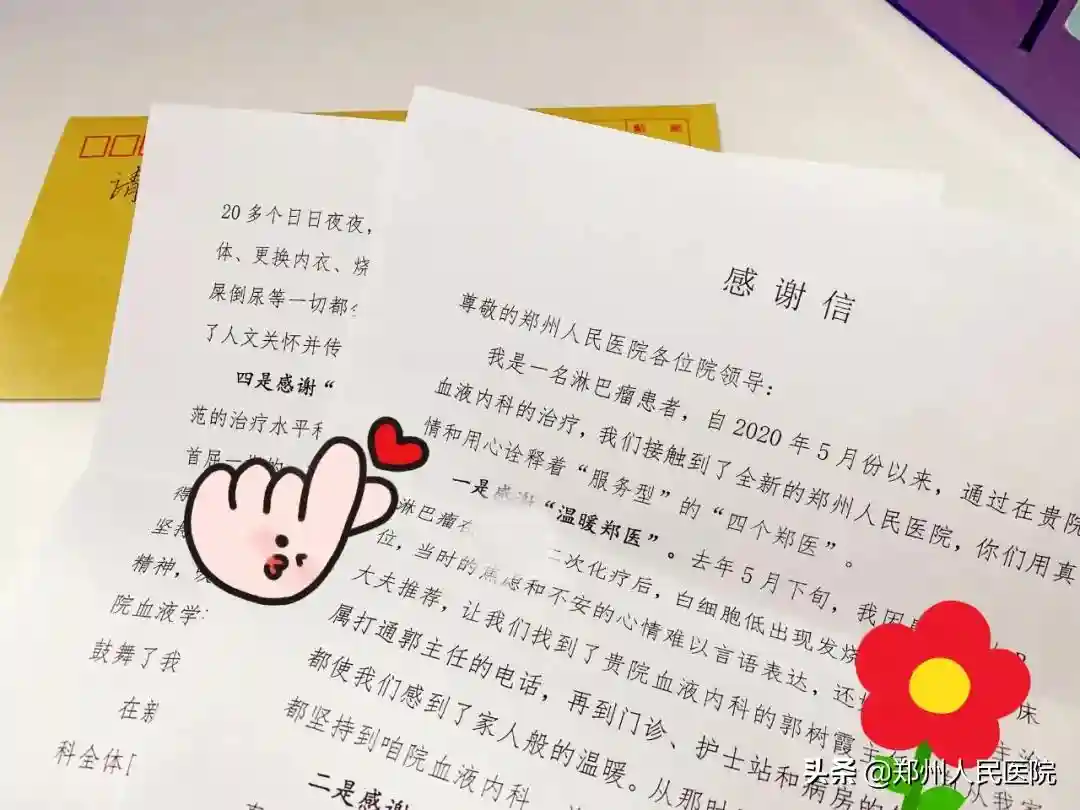 感谢信
尊敬的郑州人民医院各位院领导：
我是一名淋巴瘤患者，自2020年5月份以来，通过在贵院
血液内科的治疗，我们接触到了全新的郑州人民医院，你们用真
情和用心诠释着“服务型”的“四个郑医”。
一是感谢“温暖郑医”。去年5月下旬，我因
淋巴瘤 二次化疗后，白细胞低出现发烧 床
位，当时的焦虑和不安的心情难以言语表达，还
大夫推荐，让我们找到了贵院血液内科的郭树霞主 主治
属打通郭主任的电话，再到门诊、护士站和病房的 从我家
都使我们感到了家人般的温暖。从那时
都坚持到咱院血液内科
二是感谢
20多个日日夜夜，
体、更换内衣、烧
屎倒尿等一切都
了人文关怀并传
四是感谢“
范的治疗水平和
首屈一
得
坚持
精神，
院血液学
鼓舞了我
在新
科全体
请
头条 @郑州人民医院